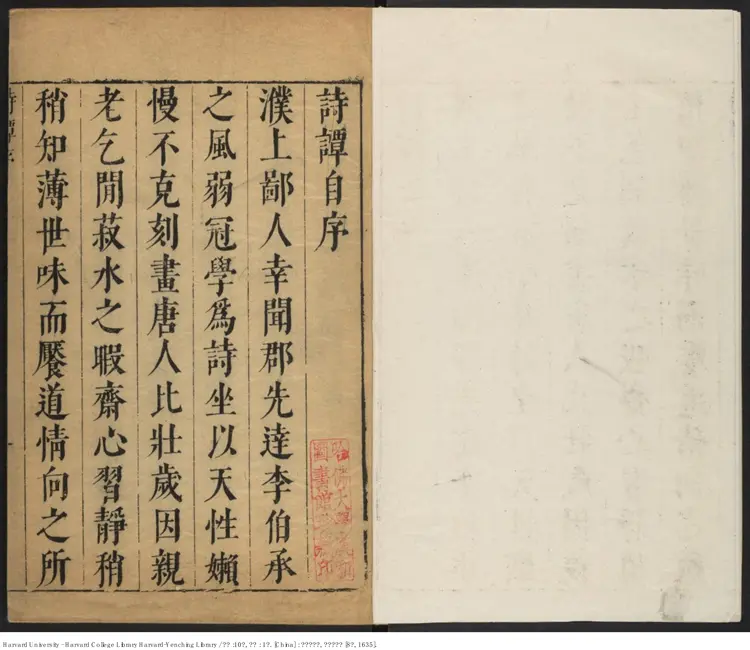 詩譚自序
濮上鄙人幸聞郡先達李伯承
之風弱冠學爲詩坐以天性嬾
慢不克刻畫唐人比壯歲因親
老乞閒菽水之暇齋心習靜稍
稍知薄世味而饜道情向之所
詩譚序
哈佛大學
圖書館
Harvard University - Harvard College Library Harvard-Yenching Library / ?? :10?, ?? : 1?. [China] : ?????, ????? [8?, 1635].